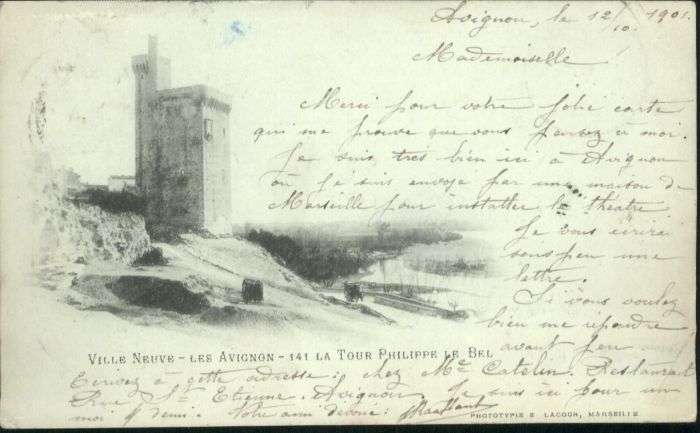 Avignon, le 12/10. 1901
Mademoiselle
Merci pour votre jolie carte
qui me prouve que vous pensez à moi.
Je suis très bien ici à Avignon
où je suis envoyé par une maison de
Marseille pour installer le théâtre
Je vous écrirai
sous peu une
lettre.
Si vous voulez
bien me répondre
avant peu
VILLE NEUVE - LES AVIGNON - 141 LA TOUR PHILIPPE LE BEL
Ecrivez à cette adresse: chez Mr Catelin. Restaurant
Rue St Etienne. Avignon. Je suis ici pour un
moi & demi. Votre ami dévoué:
PHOTOTYPIE E. LACOUR, MARSEILLE